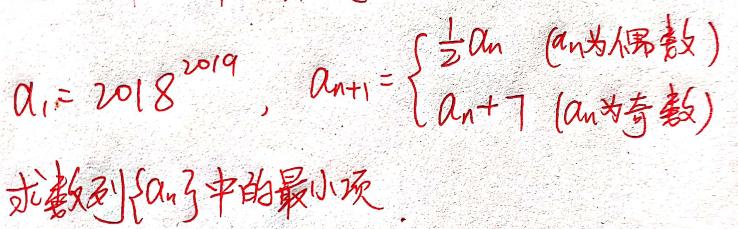 a₁ = 2018^2019 , aₙ₊₁ = { ½aₙ (aₙ为偶数) aₙ+7 (aₙ为奇数)
求数列{aₙ}中的最小项.